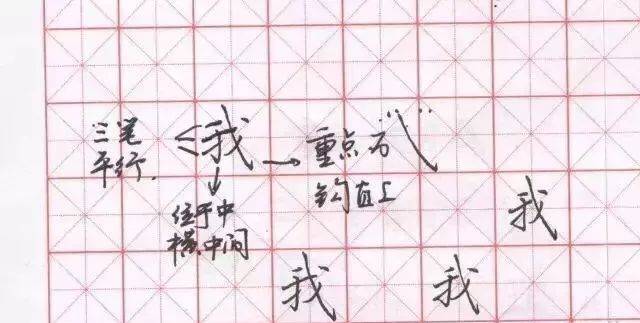 三笔
平行.
我
重点
钩直上
位于中
横中间
我
我
我